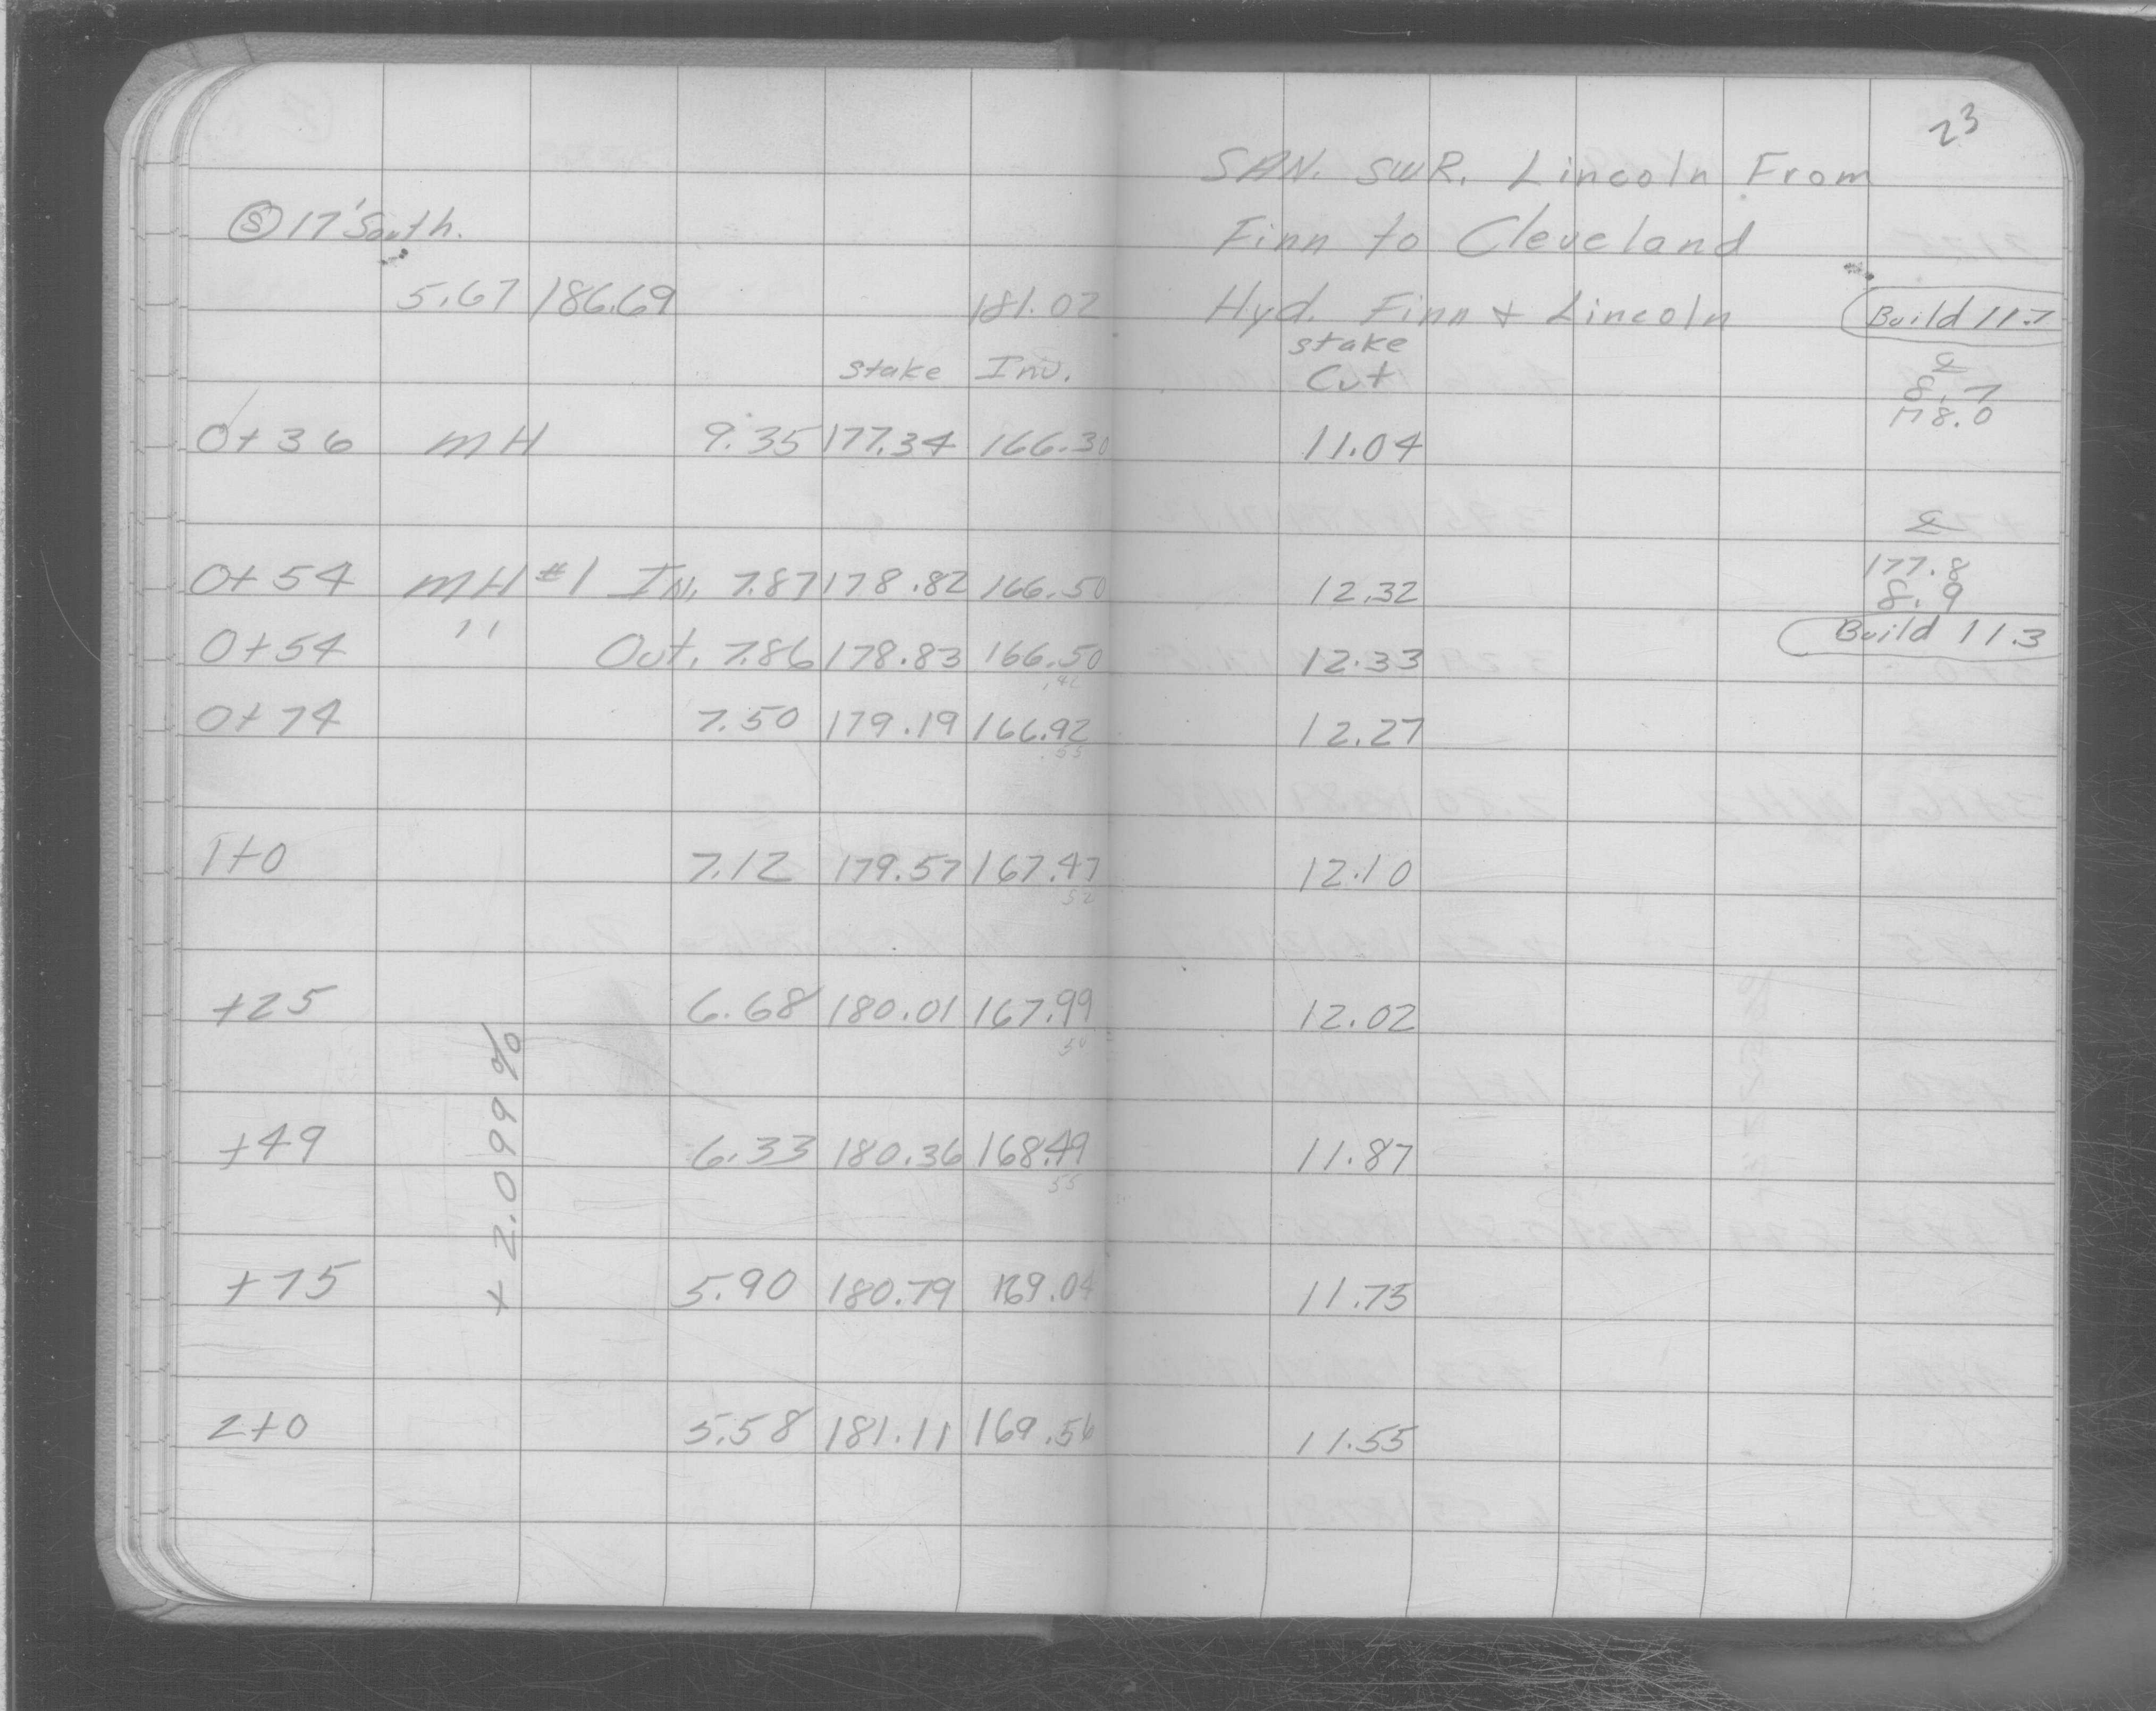 23
SAN. SWR. Lincoln From
Ⓢ 17' South.
Finn to Cleveland
5.67 186.69 181.02 Hyd. Finn + Lincoln Build 11.7
stake Inv. stake Cut ℄
8.7
178.0
0+36 MH 9.35 177.34 166.30 11.04
℄
177.8
0+54 MH #1 In. 7.87 178.82 166.50 12.32 8.9
0+54 " Out. 7.86 178.83 166.50 12.33 Build 11.3
0+74 7.50 179.19 166.92 12.27
.55
1+0 7.12 179.57 167.47 12.10
52
+25 6.68 180.01 167.99 12.02
50
+49 6.33 180.36 168.49 11.87
55
+75 5.90 180.79 169.04 11.75
2+0 5.58 181.11 169.56 11.55
+2.099%